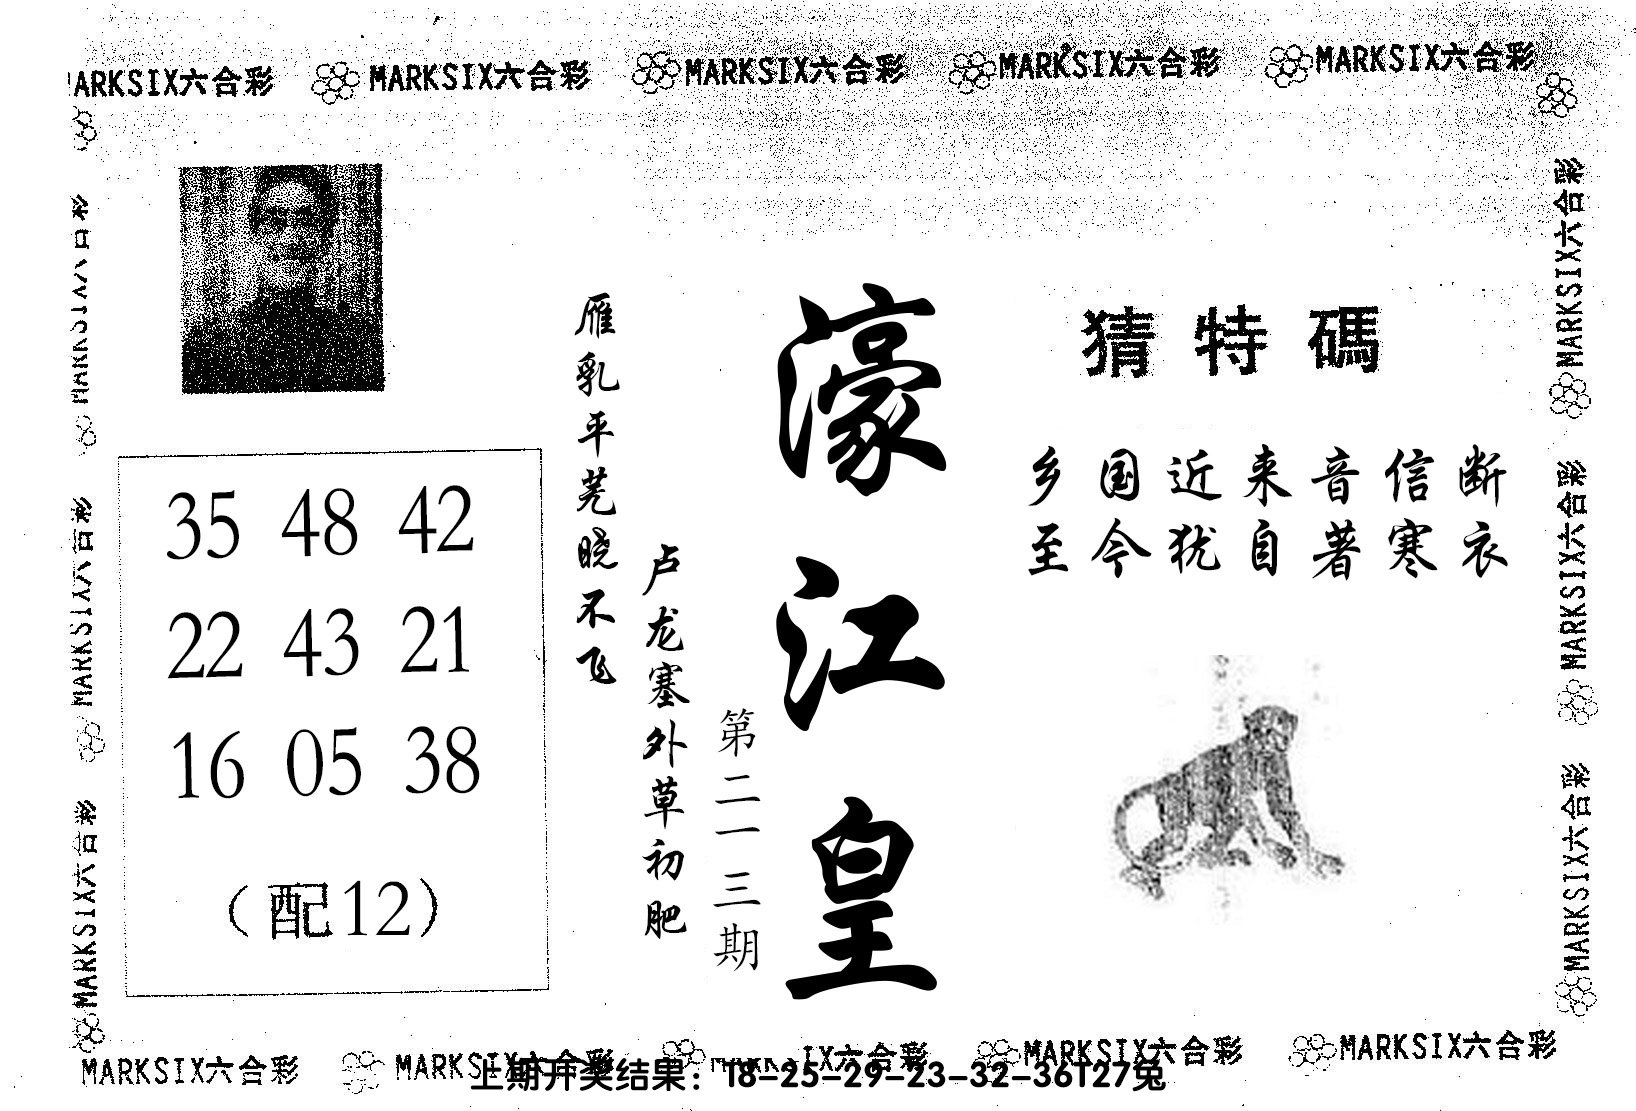 MARKSIX六合彩 MARKSIX六合彩 MARKSIX六合彩 MARKSIX六合彩 MARKSIX六合彩
猜特碼
乡国近来音信断
至今犹自著寒衣
濠江皇
第二一三期
卢龙塞外草初肥
雁乳平芜晓不飞
35 48 42
22 43 21
16 05 38
（配12）
MARKSIX六合彩
MARKSIX六合彩
MARKSIX六合彩
MARKSIX六合彩
MARKSIX六合彩
MARKSIX六合彩
MARKSIX六合彩 MARKSIX六合彩 IX六合彩 MARKSIX六合彩 MARKSIX六合彩
上期开奖结果：18-25-29-23-32-36T27兔